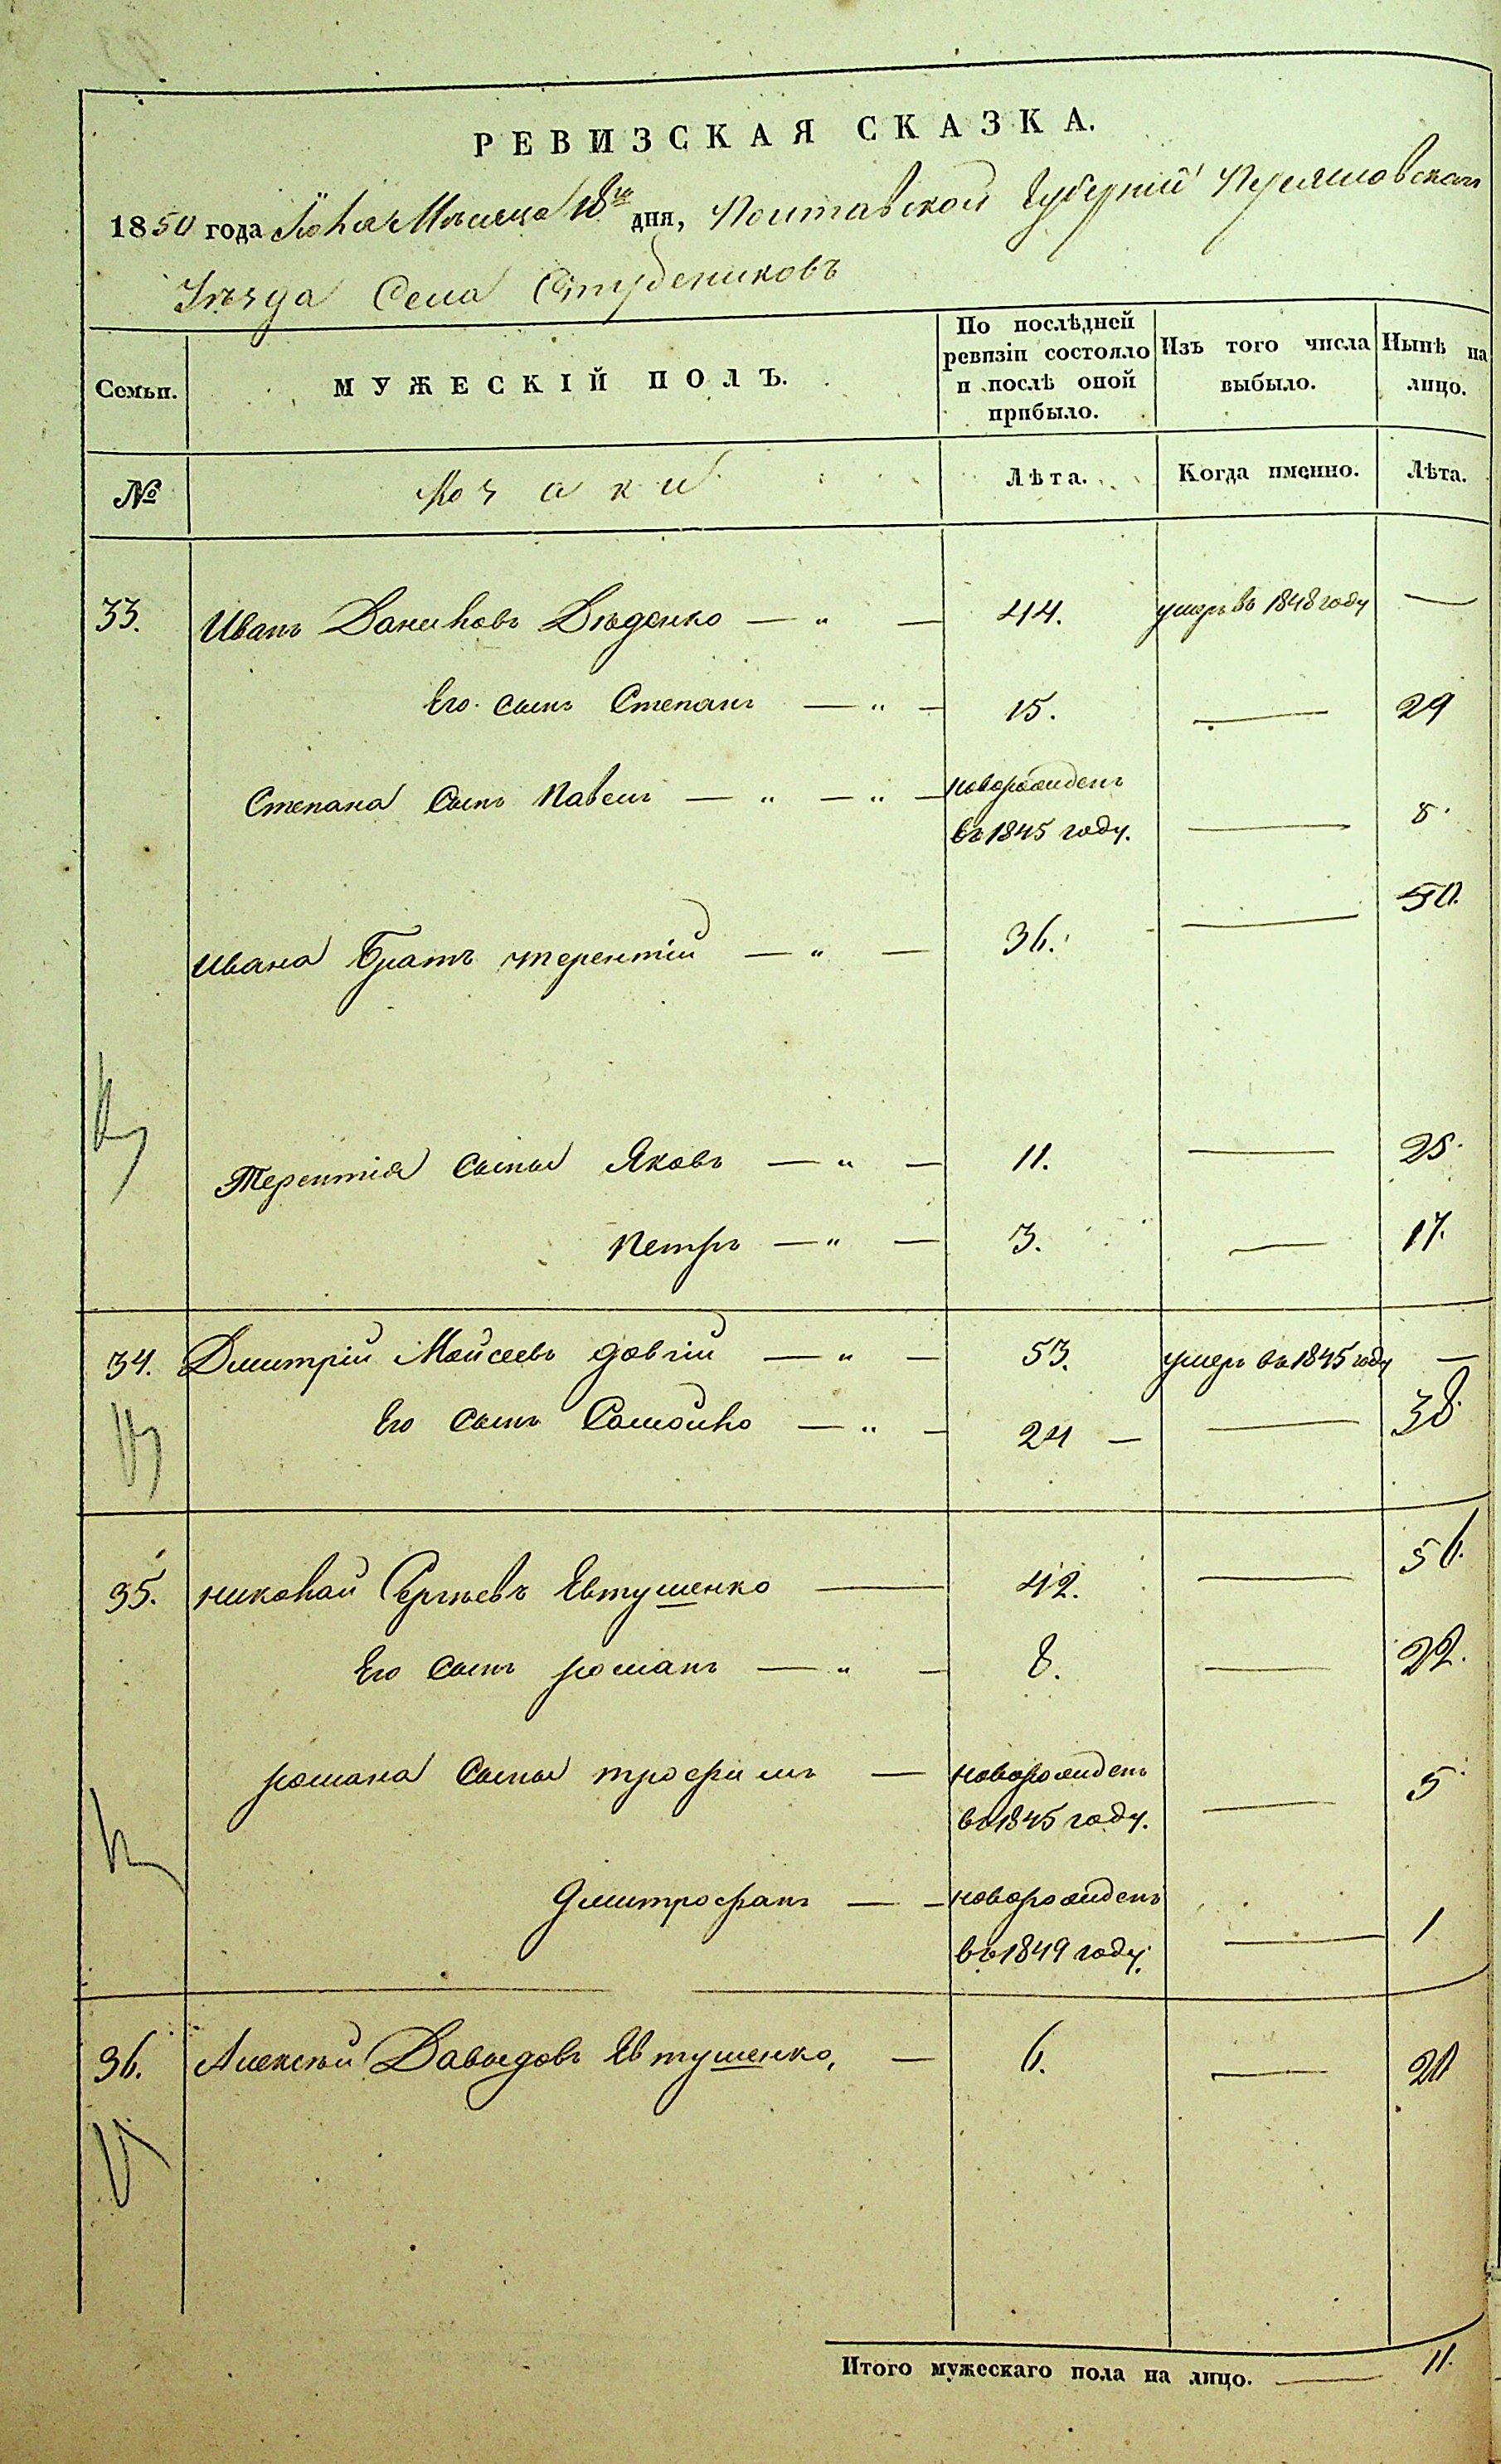 РЕВИЗСКАЯ СКАЗКА.
1850 года Июля Мѣсяца 18го дня, Полтавской Губерніи Переяславскаго
Уѣзда Села Студениковъ
Семьи.
МУЖЕСКІЙ ПОЛЪ.
По послѣдней ревизіи состояло и послѣ оной прибыло.
Изъ того числа выбыло.
Нынѣ на лицо.
№
Козаки
Лѣта.
Когда именно.
Лѣта.
33. Иванъ Даниловъ Дѣденко — „ — 44. умеръ въ 1848 году —
Его сынъ Степанъ — „ — 15. — 29
Степана Сынъ Павелъ — „ — „ — новорожденъ
въ 1845 году. — 5.
Ивана Братъ терентій — „ — 36. — 50.
Терентія Сыны Яковъ — „ — 11. — 25.
Петръ — „ — 3. — 17.
34. Дмитрій Мойсеевъ довгій — „ — 53. умеръ въ 1845 году —
Его Сынъ Самойло — „ — 24 — — 38.
35. николай Сергѣевъ Евтушенко — 42. — 56.
Его Сынъ романъ — „ — 8. — 22.
романа Сыны трофимъ — новорожденъ
въ 1845 году. — 5
Дмитрофанъ — — новорожденъ
въ 1849 году. — 1
36. Алексѣй Давыдовъ Евтушенко, — 6. — 20
Итого мужескаго пола на лицо. — 11.